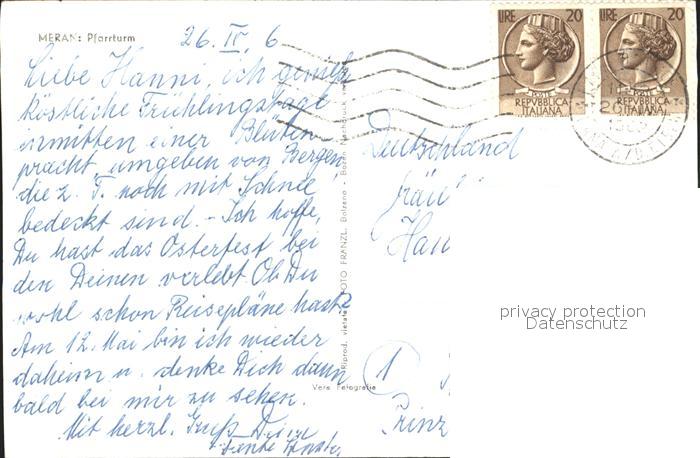 MERAN: Pfarrturm
26. IV. 6
Liebe Hanni, ich genieße
köstliche Frühlingstage
inmitten einer Blüten-
pracht, umgeben von Bergen,
die z. T. noch mit Schnee
bedeckt sind. - Ich hoffe,
Du hast das Osterfest bei
den Deinen verlebt. Ob Du
wohl schon Reisepläne hast?
Am 12. Mai bin ich wieder
daheim u. denke Dich dann
bald bei mir zu sehen.
Mit herzl. Gruß Deine
Tante
Riprod. vietata FOTO FRANZL. Bolzano - Bozen Nachdruck
Vera Fotografia
LIRE 20
POSTE
REPVBBLICA
ITALIANA
LIRE 20
POSTE
REPVBBLICA
ITALIANA
Deutschland
Fräu
Han
1
Prinz
privacy protection
Datenschutz